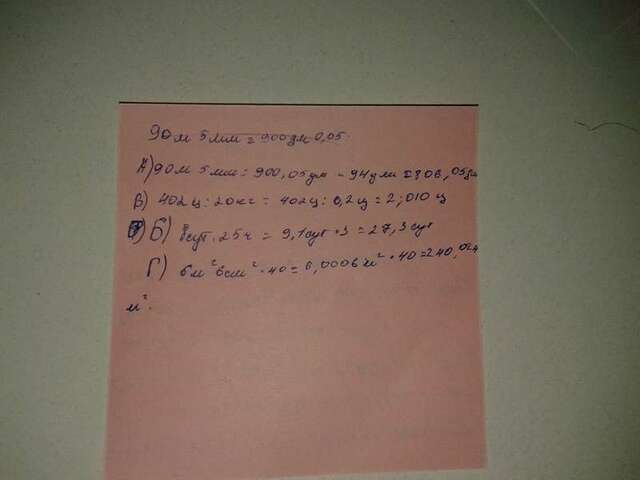 90м 5мм = 900дм 0,05
А) 90м 5мм = 900,05дм - 94дм = 806,05дм
В) 402ц : 20кг = 402ц : 0,2ц = 2,010ц
Б) 8сут. 25ч = 9,1сут · 3 = 27,3сут
Г) 6м² 6см² · 40 = 6,0006м² · 40 = 240,024
м².